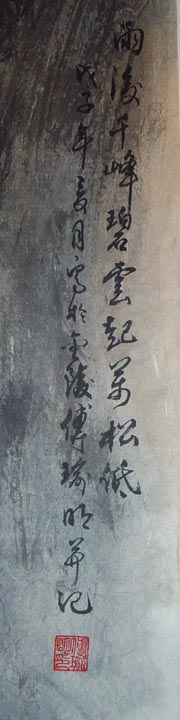 雨後千峰碧雲起萬松低
戊子年夏月寫於金陵傅瑜明并記